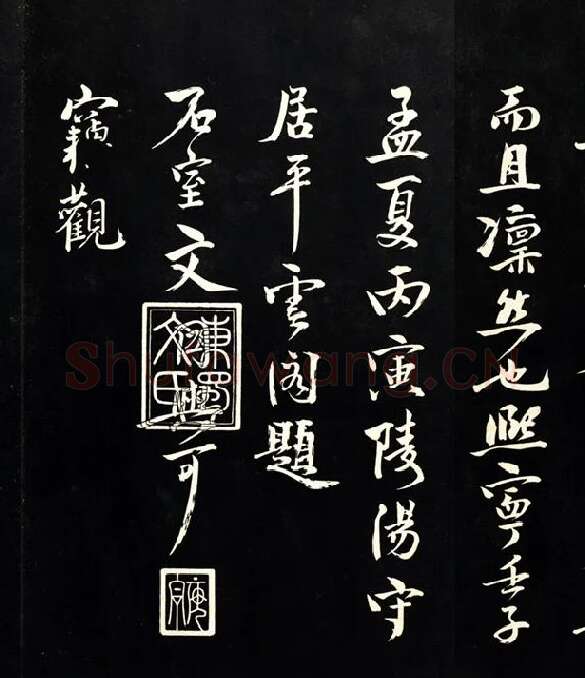 而且凜然也熙寧壬子
孟夏丙寅陵陽守
居平雲閣題
石室文與可
東蜀文氏
觀
Shufawang.CN